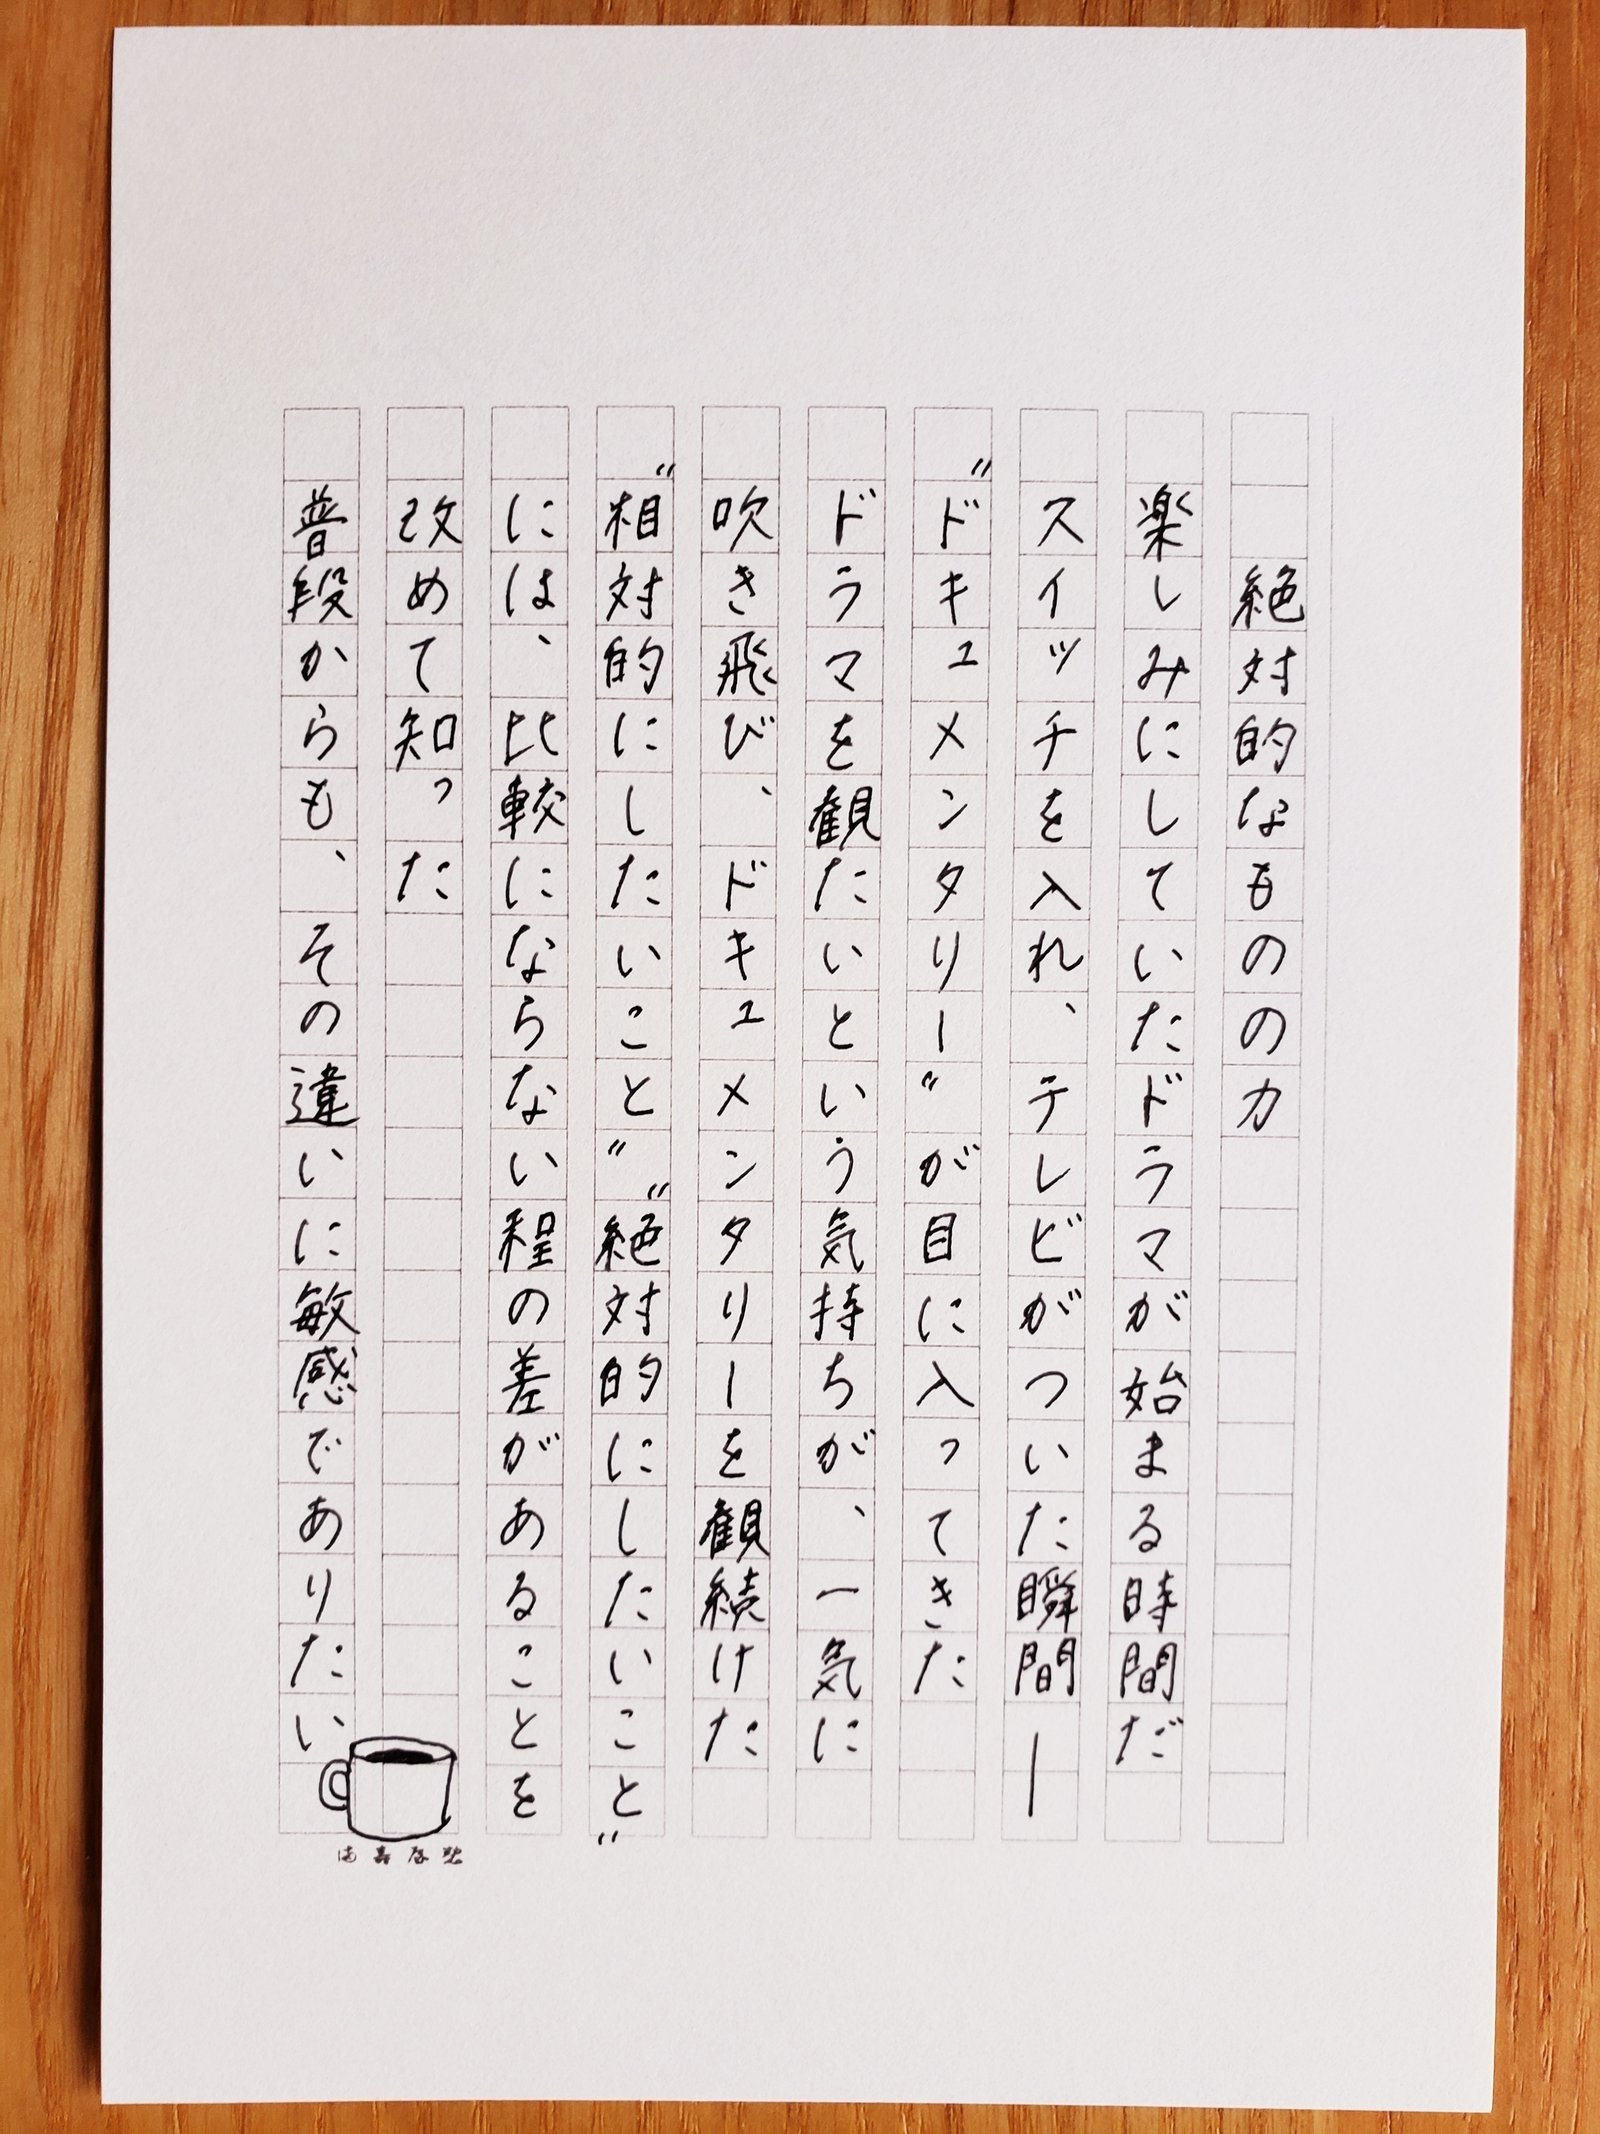 絶対的なものの力
楽しみにしていたドラマが始まる時間だ
スイッチを入れ、テレビがついた瞬間―
"ドキュメンタリー"が目に入ってきた
ドラマを観たいという気持ちが、一気に
吹き飛び、ドキュメンタリーを観続けた
"相対的にしたいこと""絶対的にしたいこと"
には、比較にならない程の差があることを
改めて知った
普段からも、その違いに敏感でありたい